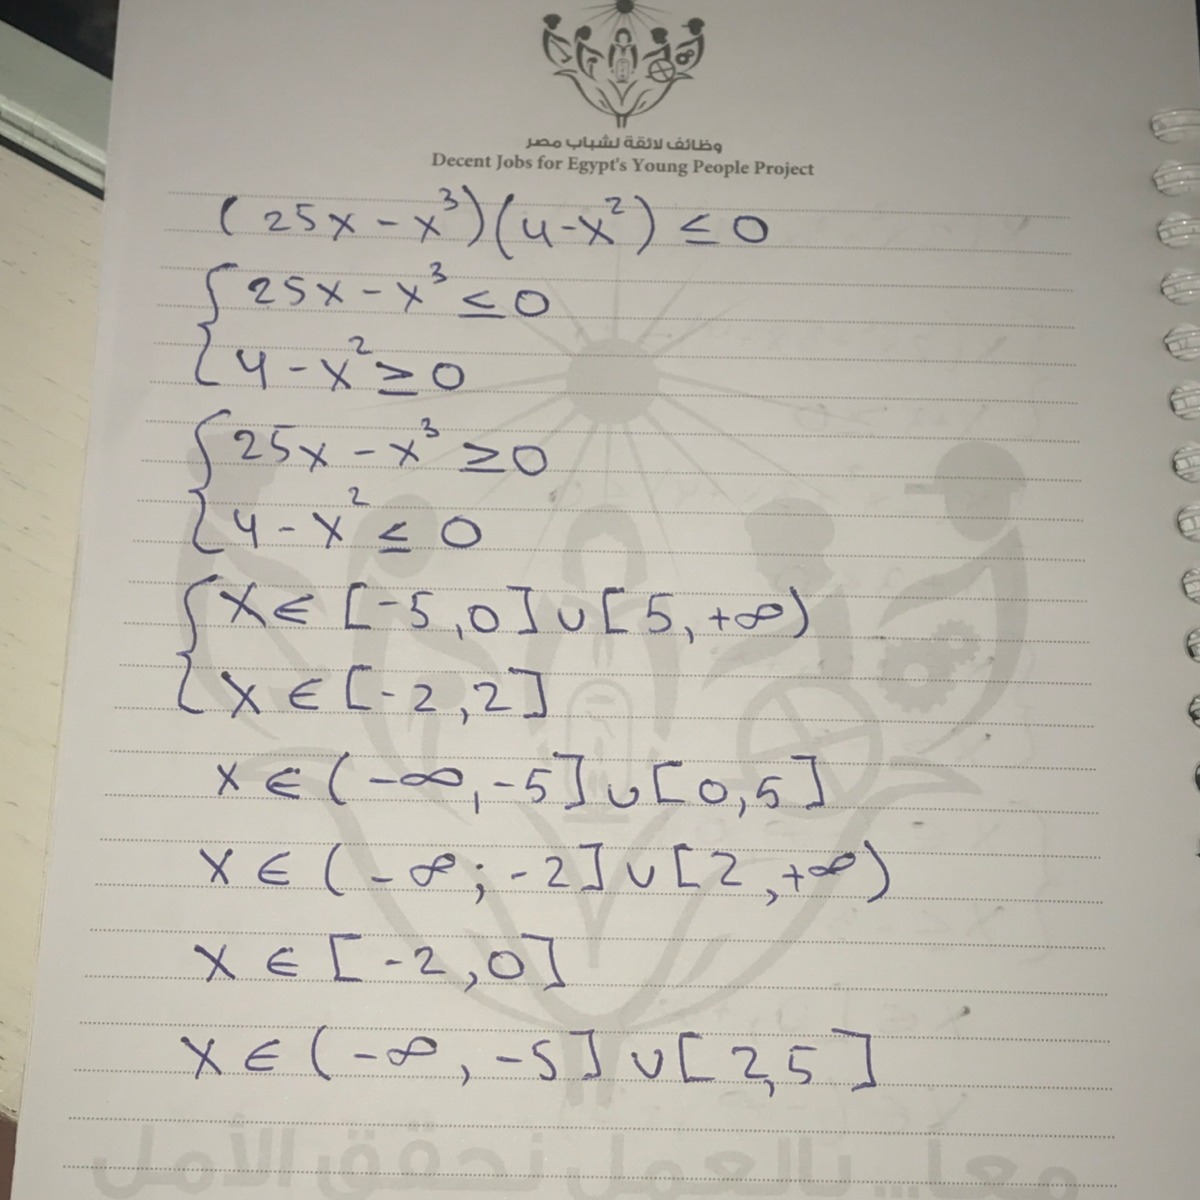 وظائف لائقة لشباب مصر
Decent Jobs for Egypt's Young People Project
(25x - x³)(4-x²) ≤ 0
25x - x³ ≤ 0
4 - x² ≥ 0
25x - x³ ≥ 0
4 - x² ≤ 0
x ∈ [-5,0] ∪ [5,+∞)
x ∈ [-2,2]
x ∈ (-∞,-5] ∪ [0,5]
x ∈ (-∞;-2] ∪ [2,+∞)
x ∈ [-2,0]
x ∈ (-∞,-5] ∪ [2,5]
معا... بالعمل نحقق الأمل